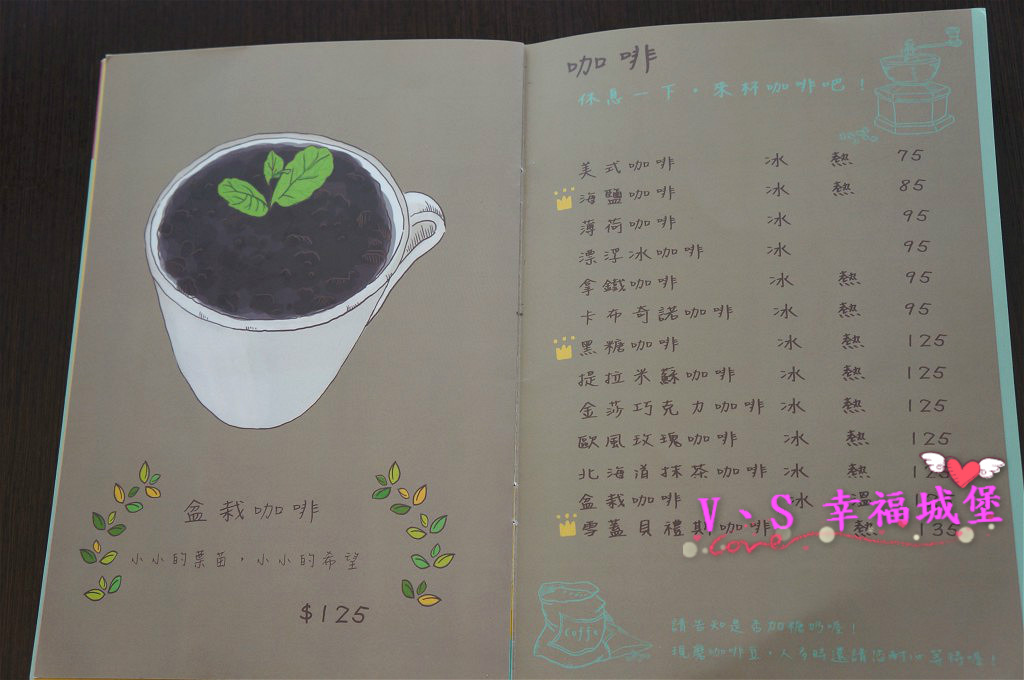 盆栽咖啡
小小的票苗，小小的希望
$125
咖啡
休息一下，來杯咖啡吧！
美式咖啡 冰 熱 75
海鹽咖啡 冰 熱 85
薄荷咖啡 冰 95
漂浮冰咖啡 冰 95
拿鐵咖啡 冰 熱 95
卡布奇諾咖啡 冰 熱 95
黑糖咖啡 冰 熱 125
提拉米蘇咖啡 冰 熱 125
金莎巧克力咖啡 冰 熱 125
歐風玫瑰咖啡 冰 熱 125
北海道抹茶咖啡 冰 熱
盆栽咖啡 冰 溫
雪蓋貝禮斯咖啡 熱 135
V、S 幸福城堡
coffe
請告知是否加糖奶喔！
現磨咖啡豆，人多時還請您耐心等待喔！